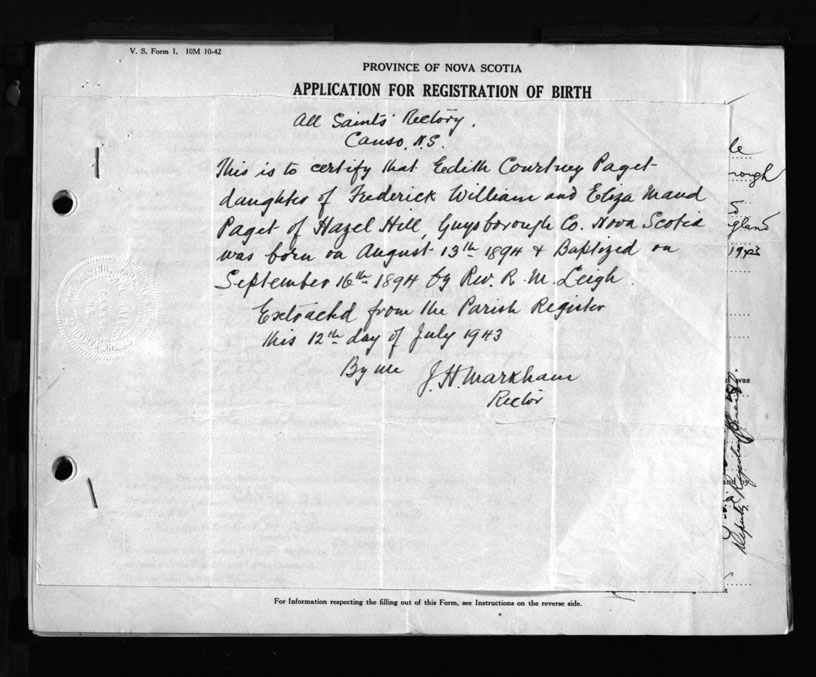 V. S. Form 1. 10M 10-42
PROVINCE OF NOVA SCOTIA
APPLICATION FOR REGISTRATION OF BIRTH
All Saints' Rectory.
Canso, N.S.
This is to certify that Edith Courtney Paget
daughter of Frederick William and Eliza Maud
Paget of Hazel Hill, Guysborough Co. Nova Scotia
was born on August 13th 1894 & Baptized on
September 16th 1894 by Rev. R. M. Leigh.
Extracted from the Parish Register
this 12th day of July 1943
By me J. H. Markham
Rector
le
rough
gland
1943
was
Deputy Registrar
For Information respecting the filling out of this Form, see Instructions on the reverse side.